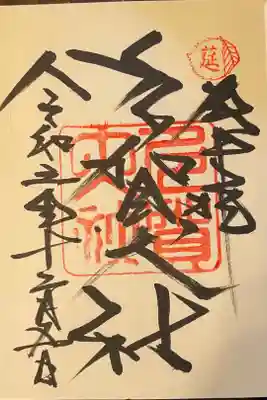 莚
多賀大社
多賀大社
令和三年十二月五日